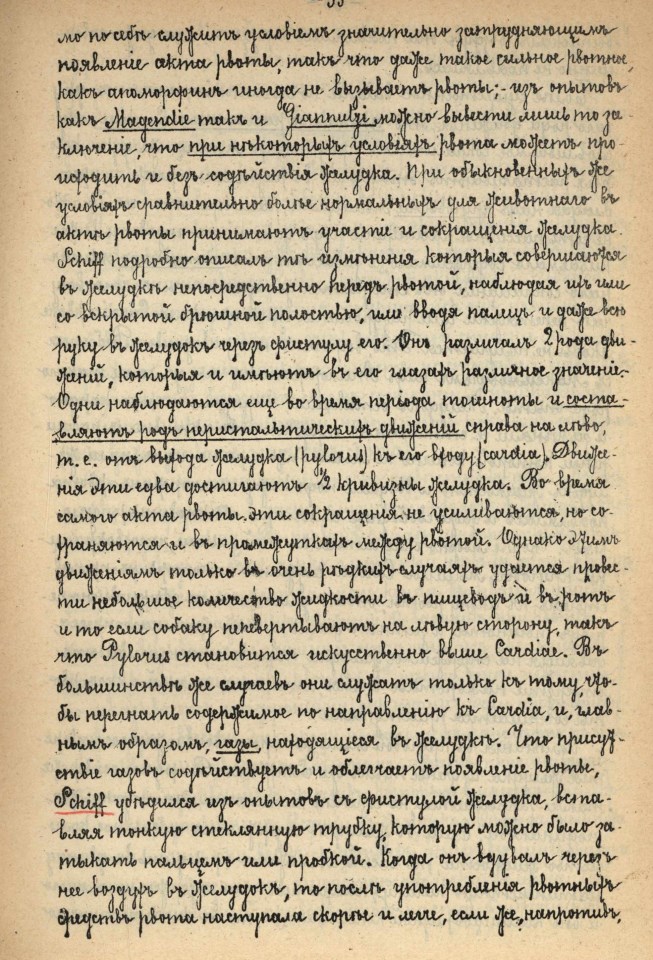 мо по себѣ служитъ условіемъ значительно затрудняющимъ
появленіе акта рвоты, такъ что даже такое сильное рвотное,
какъ апоморфинъ иногда не вызываетъ рвоты; - изъ опытовъ
какъ Magendie такъ и Giannuzzi можно вывести лишь то за-
ключеніе, что при нѣкоторыхъ условіяхъ рвота можетъ про-
исходить и безъ содѣйствія желудка. При обыкновенныхъ же
условіяхъ сравнительно болѣе нормальныхъ для животнаго въ
актѣ рвоты принимаютъ участіе и сокращенія желудка.
Schiff подробно описалъ тѣ измѣненія которыя совершаются
въ желудкѣ непосредственно передъ рвотой, наблюдая ихъ или
со вскрытой брюшной полостью, или вводя палецъ и даже всю
руку въ желудокъ черезъ фистулу его. Онъ различалъ 2 рода дви-
женій, которыя и имѣютъ въ его глазахъ различное значеніе.-
Одни наблюдаются еще во время періода тошноты и соста-
вляютъ родъ перистальтическихъ движеній справа на лѣво,
т. е. отъ выхода желудка (pylorus) къ его входу (cardia). Движе-
нія эти едва достигаютъ 1/2 кривизны желудка. Во время
самого акта рвоты эти сокращенія не усиливаются, но со-
храняются и въ промежуткахъ между рвотой. Однако этимъ
движеніямъ только въ очень рѣдкихъ случаяхъ удается провес-
ти небольшое количество жидкости въ пищеводъ и въ ротъ
и то если собаку перевертываютъ на лѣвую сторону, такъ
что Pylorus становится искусственно выше Cardiae. Въ
большинствѣ же случаевъ они служатъ только къ тому, что-
бы перегнать содержимое по направленію къ Cardia, и, глав-
нымъ образомъ, газы, находящіеся въ желудкѣ. Что присут-
ствіе газовъ содѣйствуетъ и облегчаетъ появленіе рвоты,
Schiff убѣдился изъ опытовъ съ фистулой желудка, вста-
вляя тонкую стеклянную трубку, которую можно было за-
тыкать пальцемъ или пробкой. Когда онъ вдувалъ черезъ
нее воздухъ въ желудокъ, то послѣ употребленія рвотныхъ
средствъ рвота наступала скорѣе и легче, если же, напротивъ,